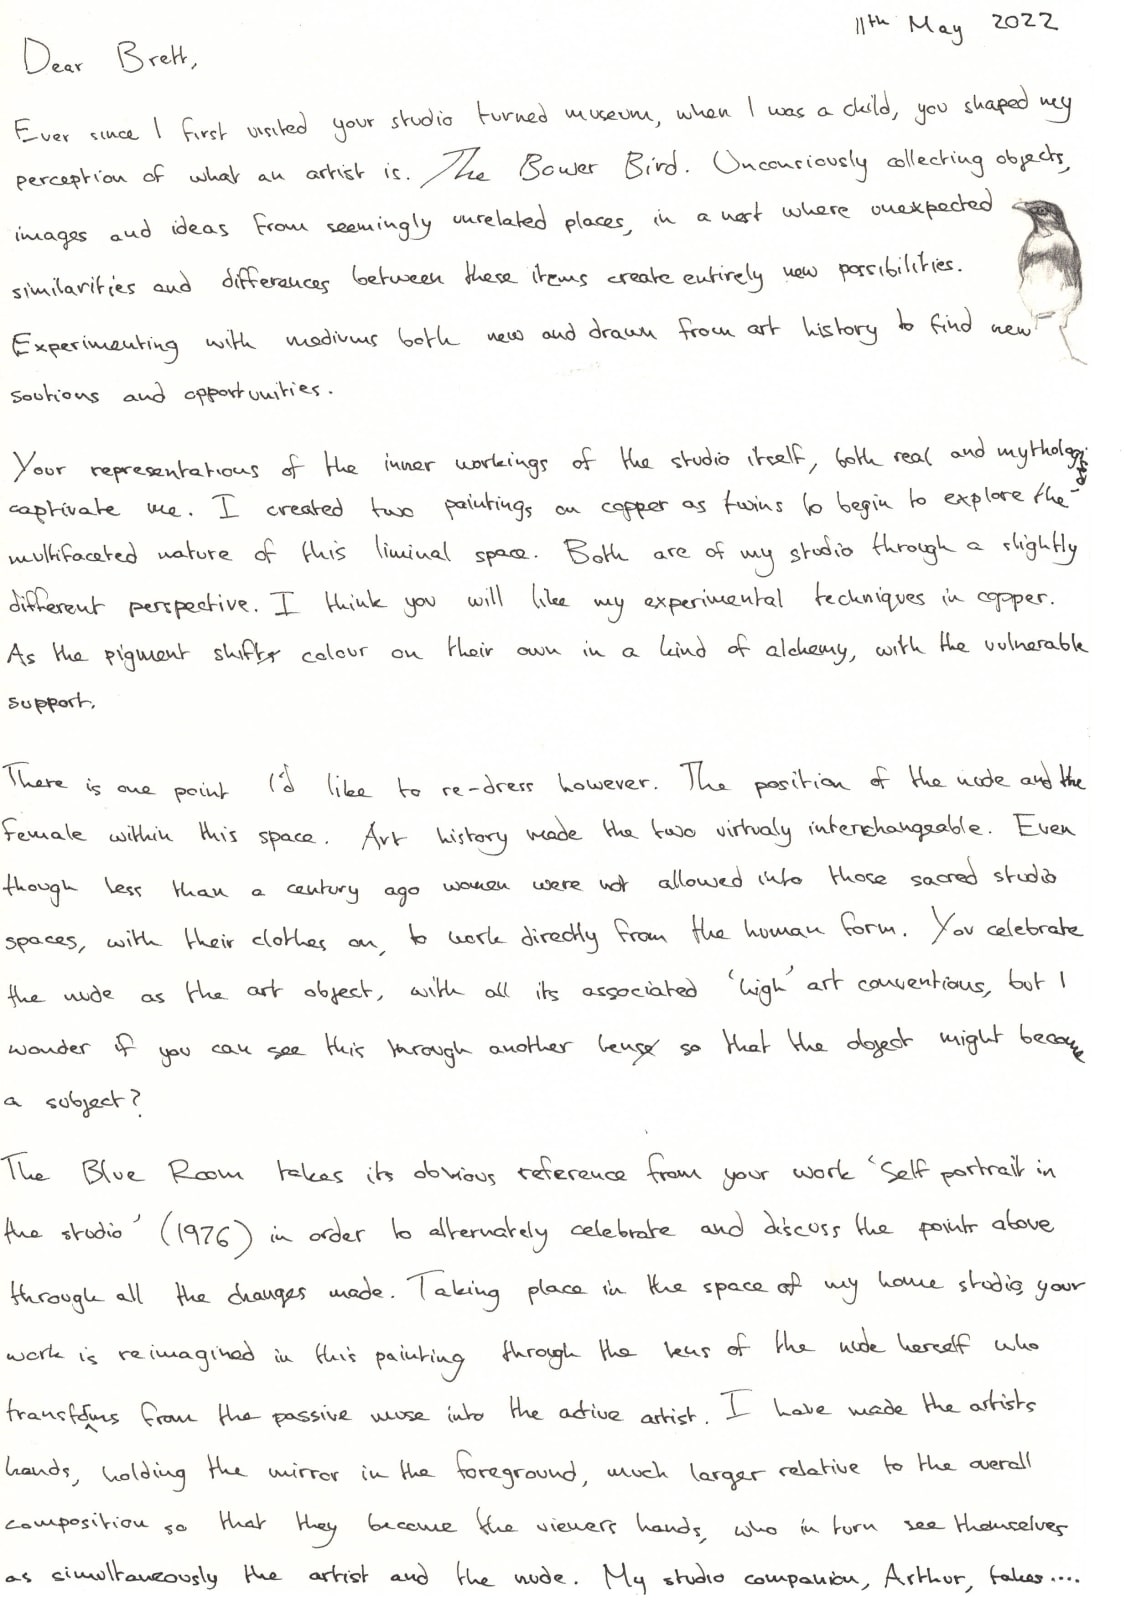 11th May 2022
Dear Brett,
Ever since I first visited your studio turned museum, when I was a child, you shaped my
perception of what an artist is. The Bower Bird. Unconsiously collecting objects,
images and ideas from seemingly unrelated places, in a nest where unexpected
similarities and differences between these items create entirely new possibilities.
Experimenting with mediums both new and drawn from art history to find new
soutions and opportunities.
Your representations of the inner workings of the studio itself, both real and mythologised
captivate me. I created two paintings on copper as twins to begin to explore the
multifaceted nature of this liminal space. Both are of my studio through a slightly
different perspective. I think you will like my experimental techniques in copper.
As the pigment shifts colour on their own in a kind of alchemy, with the vulnerable
support.
There is one point I'd like to re-dress however. The position of the nude and the
female within this space. Art history made the two virtualy interchangeable. Even
though less than a century ago women were not allowed into those sacred studio
spaces, with their clothes on, to work directly from the human form. You celebrate
the nude as the art object, with all its associated 'high' art conventions, but I
wonder if you can see this through another lens so that the object might become
a subject?
The Blue Room takes its obvious reference from your work 'Self portrait in
the studio' (1976) in order to alternately celebrate and discuss the points above
through all the changes made. Taking place in the space of my home studio, your
work is reimagined in this painting through the lens of the nude herself who
transfoms from the passive muse into the active artist. I have made the artists
hands, holding the mirror in the foreground, much larger relative to the overall
composition so that they become the viewers hands, who in turn see themselves
as simultaneously the artist and the nude. My studio companion, Arthur, takes....